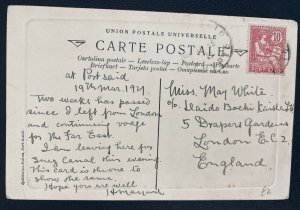 UNION POSTALE UNIVERSELLE
CARTE POSTALE
Cartolina postale — Levelezö-Lap — Postcard
Briefkart — Tarjeta postal — Dopisnice
at Port said
19th Mar. 1921.
Two weeks has passed
since I left from London
and continuing voyage
for the Far East.
I am leaving here for
Suez Canal this evening.
This card is the one to
show the same.
Hope you are well
Miss. May White
c/o. Daido Boeki Kaisha Ltd
5 Drapers Gardens
London E.C.2
England
10